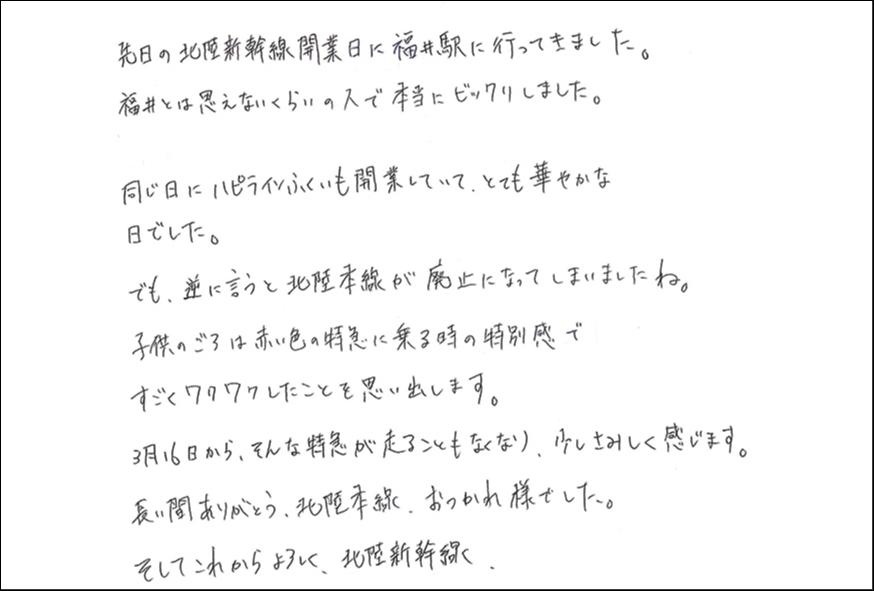 先日の北陸新幹線開業日に福井駅に行ってきました。
福井とは思えないくらいの人で本当にビックリしました。
同じ日にハピラインふくいも開業していて、とても華やかな
日でした。
でも、逆に言うと北陸本線が廃止になってしまいましたね。
子供のころは赤い色の特急に乗る時の特別感で
すごくワクワクしたことを思い出します。
3月16日から、そんな特急が走ることもなくなり、少しさみしく感じます。
長い間ありがとう、北陸本線、おつかれ様でした。
そしてこれからよろしく、北陸新幹線、